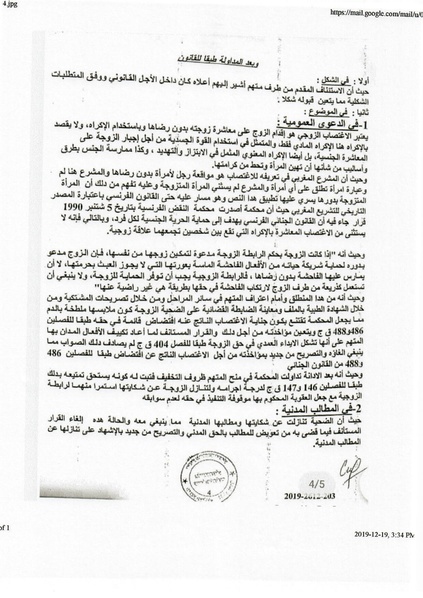 4.jpg
https://mail.google.com/mail/u/0
وبعد المداولة طبقا للقانون
أولا : في الشكل :
حيث أن الاستئناف المقدم من طرف متهم أشير إليهم أعلاه كان داخل الأجل القانوني ووفق المتطلبات
الشكلية مما يتعين قبوله شكلا .
ثانيا : في الموضوع :
1-في الدعوى العمومية :
يعتبر الاغتصاب الزوجي هو إقدام الزوج على معاشرة زوجته بدون رضاها وباستخدام الإكراه، ولا يقصد
بالإكراه هنا الإكراه المادي فقط، والمتمثل في استخدام القوة الجسدية من أجل إجبار الزوجة على
المعاشرة الجنسية، بل أيضا الإكراه المعنوي المتمثل في الابتزاز والتهديد ، وكذا ممارسة الجنس بطرق
وأساليب من شأنها أن تهين المرأة وتحط من كرامتها.
وحيث أن المشرع المغربي في تعريفه للاغتصاب هو مواقعة رجل لامرأة بدون رضاها والمشرع هنا لم
وعبارة امرأة تطلق على أي امرأة والمشرع لم يستثني المرأة المتزوجة وعليه تفهم من ذلك أن المرأة
المتزوجة بدورها يسري عليها تطبيق هذا النص وهو مسار عليه حتى القانون الفرنسي باعتباره المصدر
التاريخي للتشريع المغربي حيث أن محكمة أصدرت محكمة النقض الفرنسية بتاريخ 5 شتنبر 1990
قرار جاء فيه أن القانون الجنائي الفرنسي يهدف إلى حماية الحرية الجنسية لكل فرد، وبالتالي فإنه لا
يستثنى من الاغتصاب المعاشرة بالإكراه التي تقع بين شخصين تجمعهما علاقة زوجية.
وحيث أنه "إذا كانت الزوجة بحكم الرابطة الزوجة مدعوة لتمكين زوجها من نفسها، فإن الزوج مدعو
بدوره لحماية شريكة حياته من الأفعال الفاحشة الماسة بعورتها التي لا يجوز العبث بحرمتها، أو أن
يمارس عليها الفاحشة بدون رضاها ، فالرابطة الزوجية يجب أن توفر الحماية للزوجة، ولا ينبغي أن
تستعمل كذريعة من طرف الزوج لارتكاب الفاحشة في حقها بطريقة هي غير راضية عنها"
وحيث أنه من هدا المنطلق وأمام اعتراف المتهم في سائر المراحل ومن خلال تصريحات المشتكية ومن
خلال الشهادة الطبية بالملف ومعاينة الضابطة القضائية على الضحية الزوجة كون ملابسها ملطخة بالدم
مما يجعل المحكمة تقتنع بكون جناية الاغتصاب الناتج عنه افتضاض قائمة في حقه طبقا للفصلين
486و488 ق ج ويتعين مؤاخذته من أجل ذلك والقرار المستأنف لما أعاد تكييف الأفعال المدان بها
المتهم على أنها تشكل الايذاء العمدي في حق الزوجة طبقا للفصل 404 ق ج لم يصادف ذلك الصواب مما
ينبغي الغاؤه والتصريح من جديد بمؤاخذته من أجل الاغتصاب الناتج عن افتضاض طبقا للفصلين 486
و488 من القانون الجنائي
وحيث أنه بعد الادانة تداولت المحكمة في منح المتهم ظروف التخفيف فتبت له كونه يستحق تمتيعه بذلك
طبقا للفصلين 146 و147 ق ج لدرجة اجرامه ولتنازل الزوجة عن شكايتها استمرا منهم لرابطة
الزوجية مع جعل العقوبة المحكوم بها موقوفة التنفيذ في حقه لعدم سوابقه
2-في المطالب المدنية :
حيث أن الضحية تنازلت عن شكايتها ومطالبها المدنية مما ينبغي معه والحالة هده إلغاء القرار
المستأنف فيما قضى به من تعويض للمطالب بالحق المدني والتصريح من جديد بالإشهاد على تنازلها عن
المطالب المدنية.
4/5
2019-2612-203
of 1
2019-12-19, 3:34 PM